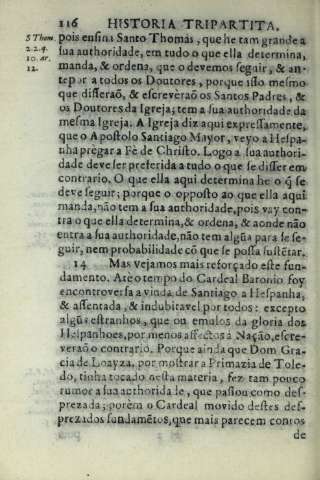 116 HISTORIA TRIPARTITA.
S Thom. pois ensina Santo Thomás, que he tam grande a
2.2.q. sua authoridade, em tudo o que ella determina,
10. ar. manda, & ordena, que o devemos seguir, & an-
12. tepor a todos os Doutores, porque isso mesmo
que disseraõ, & escreveraõ os Santos Padres, &
os Doutores da Igreja; tem a sua authoridade da
mesma Igreja. A Igreja diz aqui expressamente,
que o Apostolo Santiago Mayor, veyo a Hespa-
nha prègar a Fè de Christo. Logo a sua authori-
dade deve ser preferida a tudo o que se disser em
contrario. O que ella aqui determina he o q̃ se
deve seguir; porque o opposto ao que ella aqui
manda, não tem a sua authoridade, pois vay con-
tra o que ella determina, & ordena, & aonde não
entra a sua authoridade, não tem algũa para se se-
guir, nem probabilidade cõ que se possa sustẽtar.
14 Mas vejamos mais reforçado este fun-
damento. Atè o tempo do Cardeal Baronio foy
encontroversa a vinda de Santiago a Hespanha,
& assentada, & indubitavel por todos: excepto
algũs estranhos, que ou emulos da gloria dos
Hespanhoes, por menos affectos à Nação, escre-
veraõ o contrario. Porque ainda que Dom Gra-
cia de Loayza, por mostrar a Primazia de Tole-
do, tinha tocado nesta materia, fez tam pouco
rumor a sua authorida le, que passou como des-
prezada; porèm o Cardeal movido destes des-
prezados fundamẽtos, que mais parecem contos
de